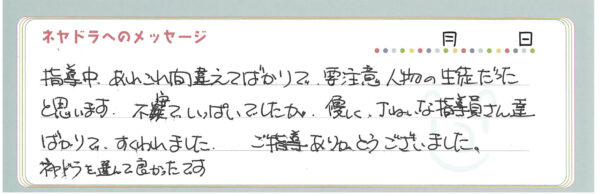 ネヤドラへのメッセージ
月 日
指導中、あれこれ間違えてばかりで、要注意人物の生徒だった
と思います。不安でいっぱいでしたが、優しく、きれいな指導員さん達
ばかりで、すくわれました。 ご指導ありがとうございました。
ネヤドラを選んで良かったです